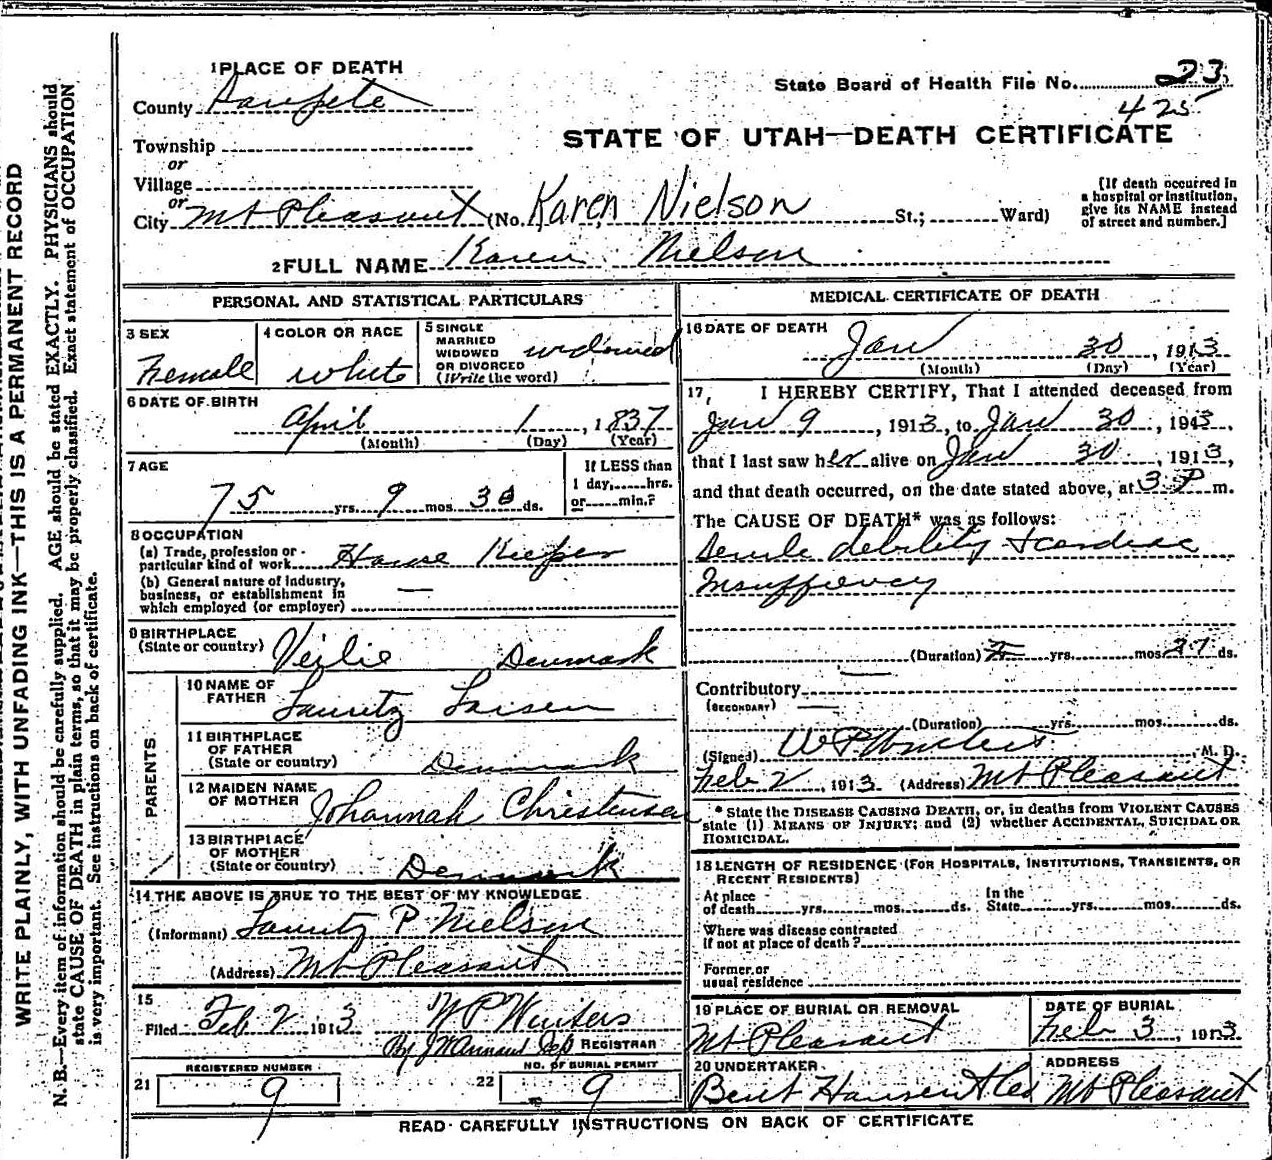 WRITE PLAINLY, WITH UNFADING INK—THIS IS A PERMANENT RECORD
N. B.—Every item of information should be carefully supplied. AGE should be stated EXACTLY. PHYSICIANS should
state CAUSE OF DEATH in plain terms, so that it may be properly classified. Exact statement of OCCUPATION
is very important. See instructions on back of certificate.
1 PLACE OF DEATH
County Sanpete
Township
or
Village
or
City Mt Pleasant (No. Karen Nielson St.; Ward)
State Board of Health File No. 23
425
STATE OF UTAH—DEATH CERTIFICATE
[If death occurred in
a hospital or institution,
give its NAME instead
of street and number.]
2 FULL NAME Karen Nielson
PERSONAL AND STATISTICAL PARTICULARS
3 SEX
Female
4 COLOR OR RACE
white
5 SINGLE
MARRIED
WIDOWED
OR DIVORCED
(Write the word)
widowed
6 DATE OF BIRTH
April 1, 1837
(Month) (Day) (Year)
7 AGE
75 yrs. 9 mos. 30 ds.
If LESS than
1 day,......hrs.
or......min.?
8 OCCUPATION
(a) Trade, profession or
particular kind of work House Keeper
(b) General nature of industry,
business, or establishment in
which employed (or employer)
9 BIRTHPLACE
(State or country) Veilie Denmark
PARENTS
10 NAME OF
FATHER
Lauritz Larsen
11 BIRTHPLACE
OF FATHER
(State or country) Denmark
12 MAIDEN NAME
OF MOTHER Johannah Christensen
13 BIRTHPLACE
OF MOTHER
(State or country) Denmark
14 THE ABOVE IS TRUE TO THE BEST OF MY KNOWLEDGE
(Informant) Lauritz P Nielson
(Address) Mt Pleasant
15
Filed Feb 2 1913 W P Winters
By J W Dep REGISTRAR
REGISTERED NUMBER
21 9
NO. OF BURIAL PERMIT
22 9
MEDICAL CERTIFICATE OF DEATH
16 DATE OF DEATH
Jan 30, 1913
(Month) (Day) (Year)
17, I HEREBY CERTIFY, That I attended deceased from
Jan 9, 1913, to Jan 30, 1913,
that I last saw her alive on Jan 30, 1913,
and that death occurred, on the date stated above, at 3 P m.
The CAUSE OF DEATH* was as follows:
Senile debility & cardiac
Insuffiency
(Duration) yrs. mos. 21 ds.
Contributory
(SECONDARY)
(Duration) yrs. mos. ds.
(Signed) W P Winters, M. D.
Feb 2, 1913 (Address) Mt Pleasant
* State the DISEASE CAUSING DEATH, or, in deaths from VIOLENT CAUSES
state (1) MEANS OF INJURY; and (2) whether ACCIDENTAL, SUICIDAL OR
HOMICIDAL.
18 LENGTH OF RESIDENCE (FOR HOSPITALS, INSTITUTIONS, TRANSIENTS, OR
RECENT RESIDENTS)
At place
of death yrs. mos. ds.
In the
State yrs. mos. ds.
Where was disease contracted
If not at place of death?
Former or
usual residence
19 PLACE OF BURIAL OR REMOVAL
Mt Pleasant
DATE OF BURIAL
Feb 3, 1913
20 UNDERTAKER
Bent Hansen
ADDRESS
Mt Pleasant
READ CAREFULLY INSTRUCTIONS ON BACK OF CERTIFICATE